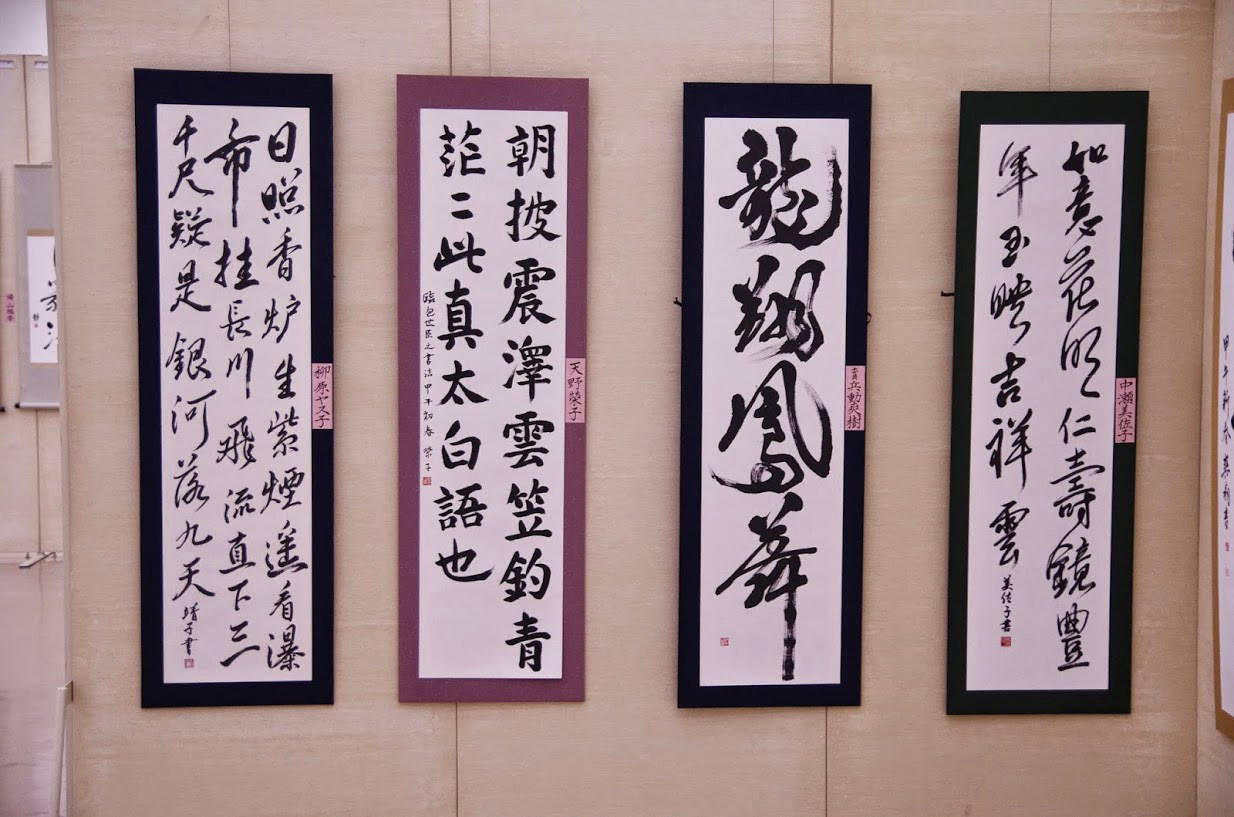 甲午新春
如意花明仁壽鏡豊
年玉映吉祥雲 美佐子書
中瀬美佐子
龍翔鳳舞
兵動爽樹
朝披震澤雲笠釣青
茫〻此真太白語也
臨包世臣之書法 甲午初春 榮子
天野榮子
日照香炉生紫煙遥看瀑
布挂長川飛流直下三
千尺疑是銀河落九天 靖子書
柳原ヤス子